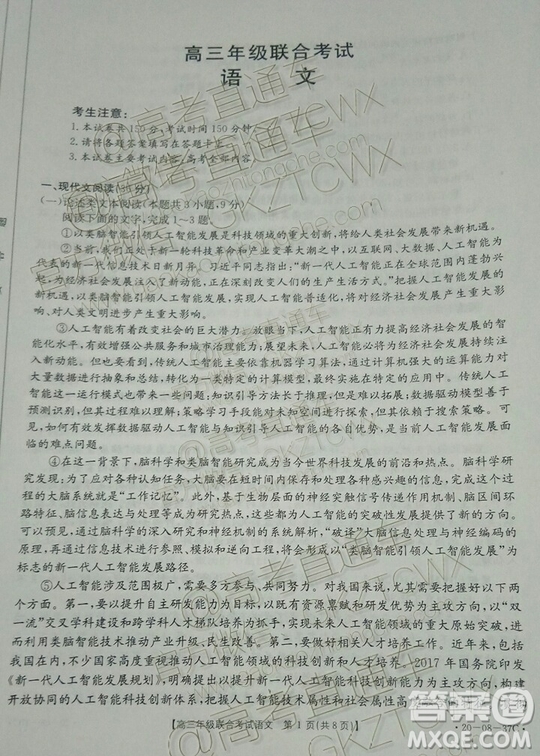 高三年级联合考试
语 文
考生注意:
1.本试卷共150分,考试时间150分钟。
2.请将各题答案填写在答题卡上。
3.本试卷主要考试内容:高考全部内容。
一、现代文阅读(36分)
(一)论述类文本阅读(本题共3小题,9分)
阅读下面的文字,完成1～3题。
①以类脑智能引领人工智能发展是科技领域的重大创新,将给人类社会发展带来新机遇。
②当前,我们正处于新一轮科技革命和产业变革大潮之中,以互联网、大数据、人工智能为
代表的新一代信息技术日新月异。习近平同志指出:“新一代人工智能正在全球范围内蓬勃兴
起,为经济社会发展注入了新动能,正在深刻改变人们的生产生活方式。”把握人工智能发展的
新机遇,以类脑智能引领人工智能发展,实现人工智能普适化,将对经济社会发展产生重大影
响,对人类文明进步产生重大影响。
③人工智能有着改变社会的巨大潜力。放眼当下,人工智能正有力提高经济社会发展智
能化水平,有效增强公共服务和城市治理能力;展望未来,人工智能将为经济社会发展持续注
入新动能。然而,传统人工智能主要依靠机器学习算法,通过计算机强大的计算能力对
大量数据进行统计和抽象,转化为一类特定的计算模型,最终实施在特定的应用中。传统人工
智能这一运行模式会带来一些问题:知识引导方法长于推理,但其难以拓展;数据驱动模型善于
预测识别,但其过程难以理解;策略学习手段能对未知空间进行探索,但其依赖于搜索策略。因
此,如何有效发挥数据驱动人工智能与知识引导人工智能的各自优势,是当前人工智能发展面
临的难点问题。
④在这一背景下,脑科学和类脑智能研究成为当今世界科技发展的前沿和热点。脑科学研
究发现:为了完成各种各样任务,大脑需在短时间内保存和处理各种感兴趣的信息,完成这些过
程的大脑系统就是“工作记忆”。此外,基于生物层面的神经突触传递作用机制、脑区间环
路特征、脑信息表达与处理等成功模式,也将为人工智能的突破性发展提供了更多可能。
可以预见,通过脑科学的深入研究和神经机制的系统解析,“破译”大脑信息处理与神经编码的
原理,再通过信息技术进行参照、模拟和逆向工程,将会形成以“类脑智能引领人工智能发展”为
标志的新一代人工智能发展路径。
⑤人工智能涉及范围极广,需要多方参与、共同努力。对我国来说,尤其需要做好以下两
个方面。第一,要以提升自主研发能力为目标,以既有资源禀赋和研发优势为主攻方向,以“双
一流”交叉学科建设和跨学科人才梯队培养为引导,率先实现人工智能领域的重大原始突破,进
而利用类脑智能技术推动产业升级、民生改善。第二,要做好相关人才培养工作。近年来,包括
我国在内,不少国家高度重视推动人工智能领域的科技创新和人才培养。2017年国务院印发
《新一代人工智能发展规划》,以提升新一代人工智能科技创新能力为主攻方向,构建
开放协同的人工智能科技创新体系,把握人工智能技术属性和社会属性高度
【高三年级联合考试语文 第1页(共8页)】
·20-08-37C·
@高考直通车
GKZTCWX
答案圈
MXQE.COM